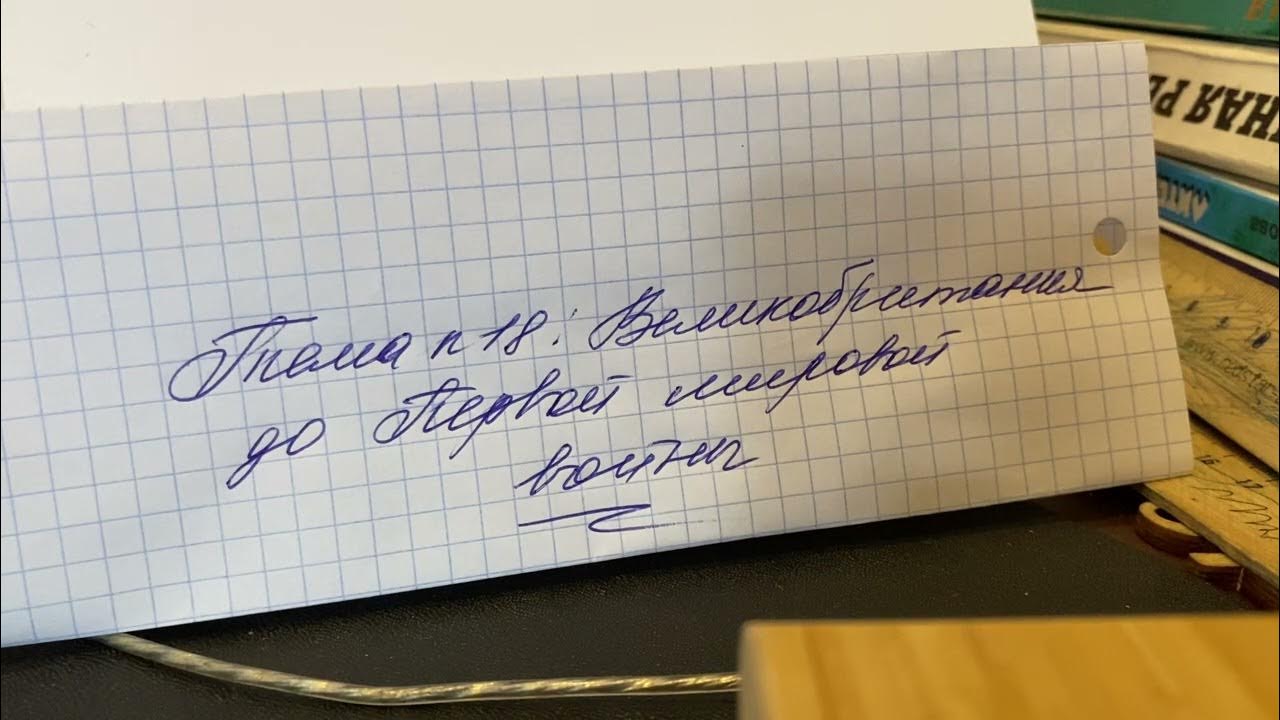 Тема п 18: Великобритания
до Первой мировой
войны
НАЯ РЫ